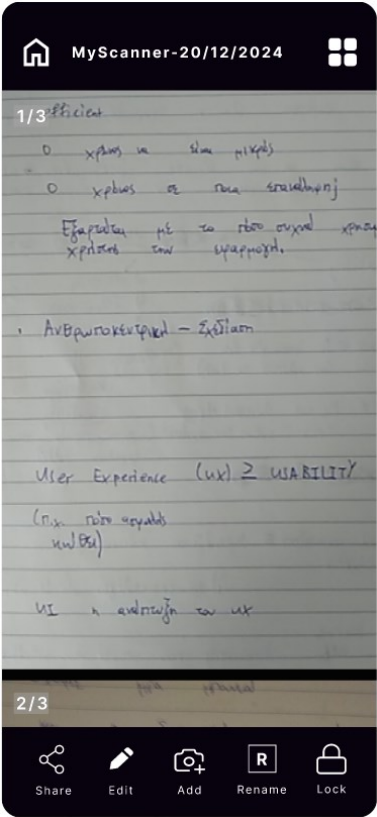 MyScanner-20/12/2024
1/3
efficient
Ο χρόνος να είναι μικρός
Ο χρόνος σε ποια επανάληψη
Εξαρτάται με το πόσο συχνά
χρήστης την εφαρμογή.
· Ανθρωποκεντρική – Σχεδίαση
User Experience (UX) ≥ USABILITY
(π.χ. πόσο ασφαλής
νιώθει)
UI η ανάπτυξη του UX
2/3
Share Edit Add Rename Lock
R